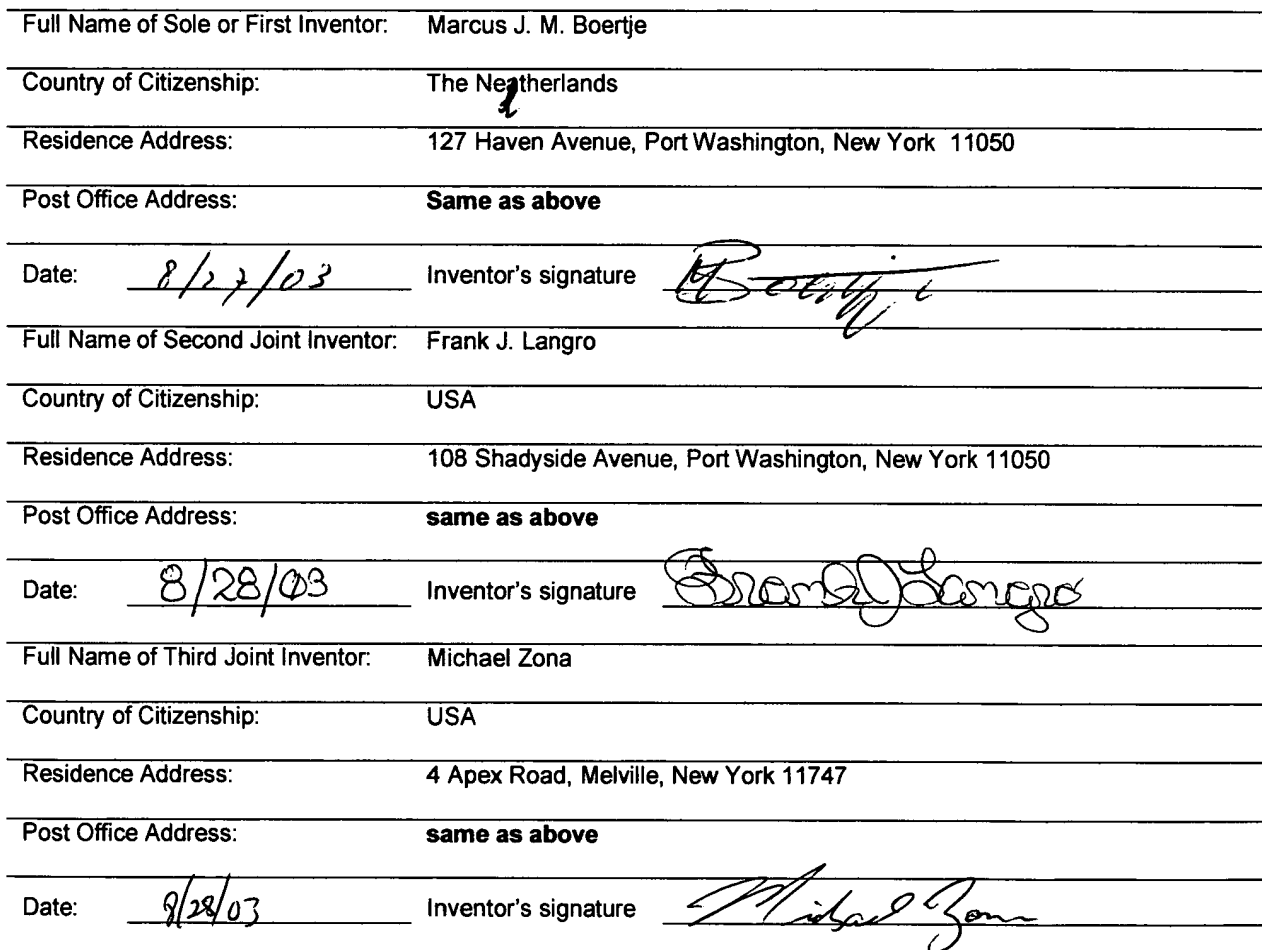 Full Name of Sole or First Inventor: Marcus J. M. Boertje
Country of Citizenship: The Netherlands
Residence Address: 127 Haven Avenue, Port Washington, New York 11050
Post Office Address: Same as above
Date: 8/27/03 Inventor's signature MBoertje
Full Name of Second Joint Inventor: Frank J. Langro
Country of Citizenship: USA
Residence Address: 108 Shadyside Avenue, Port Washington, New York 11050
Post Office Address: same as above
Date: 8/28/03 Inventor's signature Frank J Langro
Full Name of Third Joint Inventor: Michael Zona
Country of Citizenship: USA
Residence Address: 4 Apex Road, Melville, New York 11747
Post Office Address: same as above
Date: 8/28/03 Inventor's signature Michael Zona